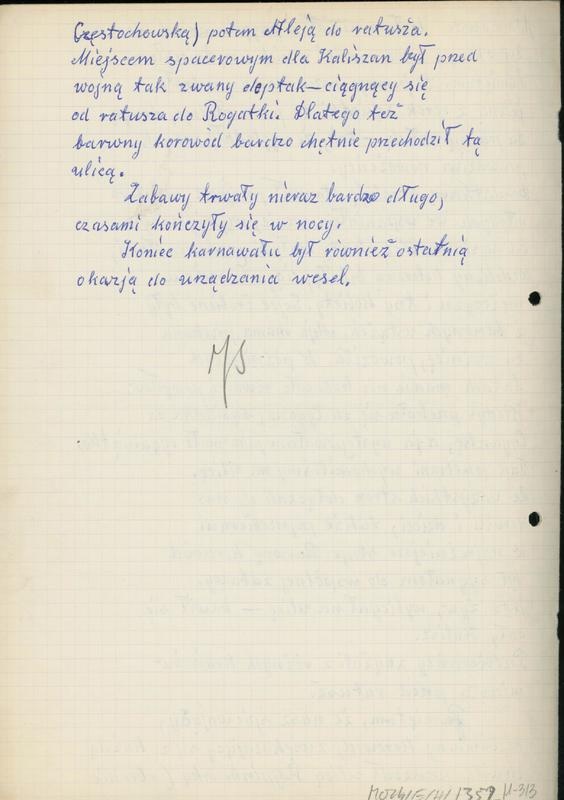 Częstochowską) potem Aleją do ratusza.
Miejscem spacerowym dla Kaliszan był przed
wojną tak zwany deptak – ciągnący się
od ratusza do Rogatki. Dlatego też
barwny korowód bardzo chętnie przechodził tą
ulicą.
Zabawy trwały nieraz bardzo długo,
czasami kończyły się w nocy.
Koniec karnawału był również ostatnią
okazją do urządzania wesel.
MS
MOZK/E/H/1359 M-313